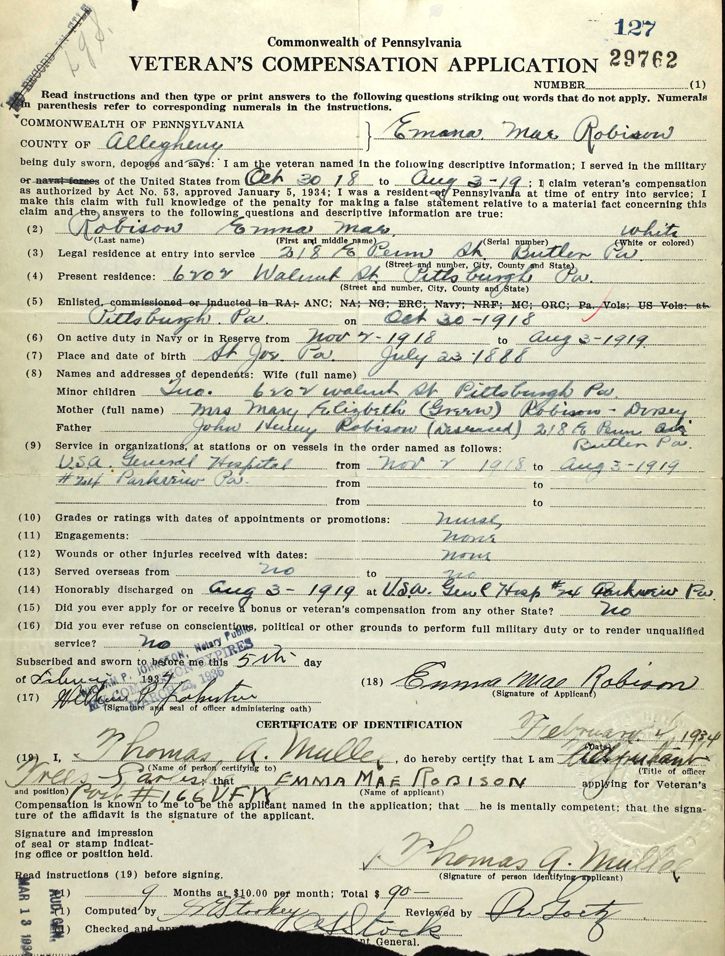 127
29762
RECORD IN FILE
298.
Commonwealth of Pennsylvania
VETERAN'S COMPENSATION APPLICATION
NUMBER (1)
Read instructions and then type or print answers to the following questions striking out words that do not apply. Numerals
in parenthesis refer to corresponding numerals in the instructions.
COMMONWEALTH OF PENNSYLVANIA
COUNTY OF Allegheny } Emma Mae Robison
being duly sworn, deposes and says: I am the veteran named in the following descriptive information; I served in the military
or naval forces of the United States from Oct 30 18 to Aug 3-19; I claim veteran's compensation
as authorized by Act No. 53, approved January 5, 1934; I was a resident of Pennsylvania at time of entry into service; I
make this claim with full knowledge of the penalty for making a false statement relative to a material fact concerning this
claim and the answers to the following questions and descriptive information are true:
(2) Robison Emma Mae. white
(Last name) (First and middle name) (Serial number) (White or colored)
(3) Legal residence at entry into service 218 E Penn St. Butler Pa
(Street and number, City, County and State)
(4) Present residence: 6202 Walnut St. Pittsburgh Pa.
(Street and number, City, County and State)
(5) Enlisted, commissioned or inducted in RA; ANC; NA; NG; ERC; Navy; NRF; MC; ORC; Pa. Vols; US Vols: at
Pittsburgh. Pa. on Oct 30-1918
(6) On active duty in Navy or in Reserve from Nov 2-1918 to Aug 3-1919
(7) Place and date of birth St Joe. Pa. July 23-1888
(8) Names and addresses of dependents: Wife (full name)
Minor children 6202 Walnut St Pittsburgh Pa.
Mother (full name) Mrs Mary Elizabeth (Green) Robison - Dorsey
Father John Henry Robison (Deceased) 218 E Penn
Butler Pa.
(9) Service in organizations, at stations or on vessels in the order named as follows:
U.S.A. General Hospital from Nov 2 1918 to Aug 3-1919
#24 Parkview Pa. from to
from to
(10) Grades or ratings with dates of appointments or promotions: nurse
(11) Engagements: none
(12) Wounds or other injuries received with dates: none
(13) Served overseas from no to no
(14) Honorably discharged on Aug 3-1919 at U.S.A. Gen'l Hosp #24 Parkview Pa.
(15) Did you ever apply for or receive a bonus or veteran's compensation from any other State? No
(16) Did you ever refuse on conscientious, political or other grounds to perform full military duty or to render unqualified
service? No
WILLIAM P. JOHNSTON, Notary Public
MY COMMISSION EXPIRES
MARCH 23, 1935
Subscribed and sworn to before me this 5th day
of February 1934 (18) Emma Mae Robison
(Signature of Applicant)
(17) William P. Johnston
(Signature and seal of officer administering oath)
CERTIFICATE OF IDENTIFICATION
February 1934
(Date)
(19) I, Thomas A. Muller, do hereby certify that I am the Adjutant
(Name of person certifying to) (Title of officer
that EMMA MAE ROBISON applying for Veteran's
and position) Post #166 VFW (Name of applicant)
Compensation is known to me to be the applicant named in the application; that he is mentally competent; that the signa-
ture of the affidavit is the signature of the applicant.
Signature and impression
of seal or stamp indicat-
ing office or position held.
Thomas A. Muller
(Signature of person identifying applicant)
Read instructions (19) before signing.
1) 9 Months at $10.00 per month; Total $ 90—
(1) Computed by Reviewed by
(1) Checked and
General.
AUD. GEN.
MAR 13 1934